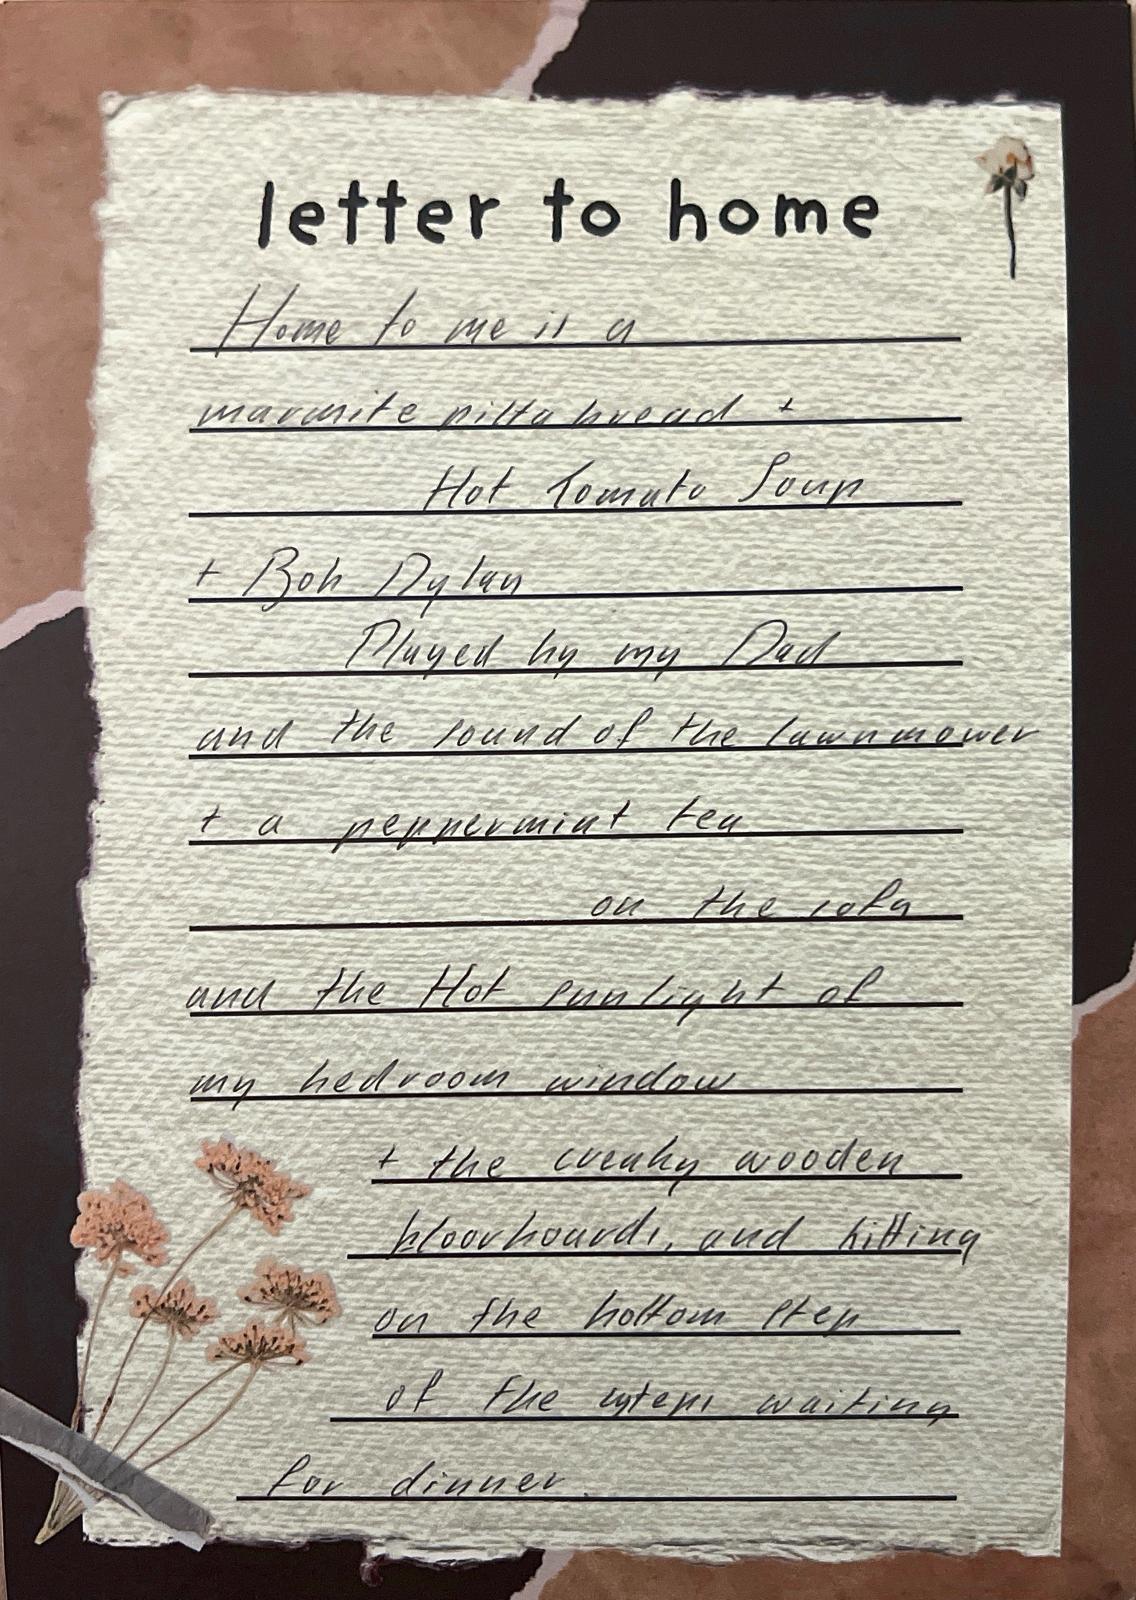 letter to home
Home to me is a
marmite pitta bread +
Hot Tomato Soup
+ Bob Dylan
Played by my Dad
and the sound of the lawnmower
+ a peppermint tea
on the sofa
and the Hot sunlight of
my bedroom window
+ the creaky wooden
floorboards, and sitting
on the bottom step
of the steps waiting
for dinner.